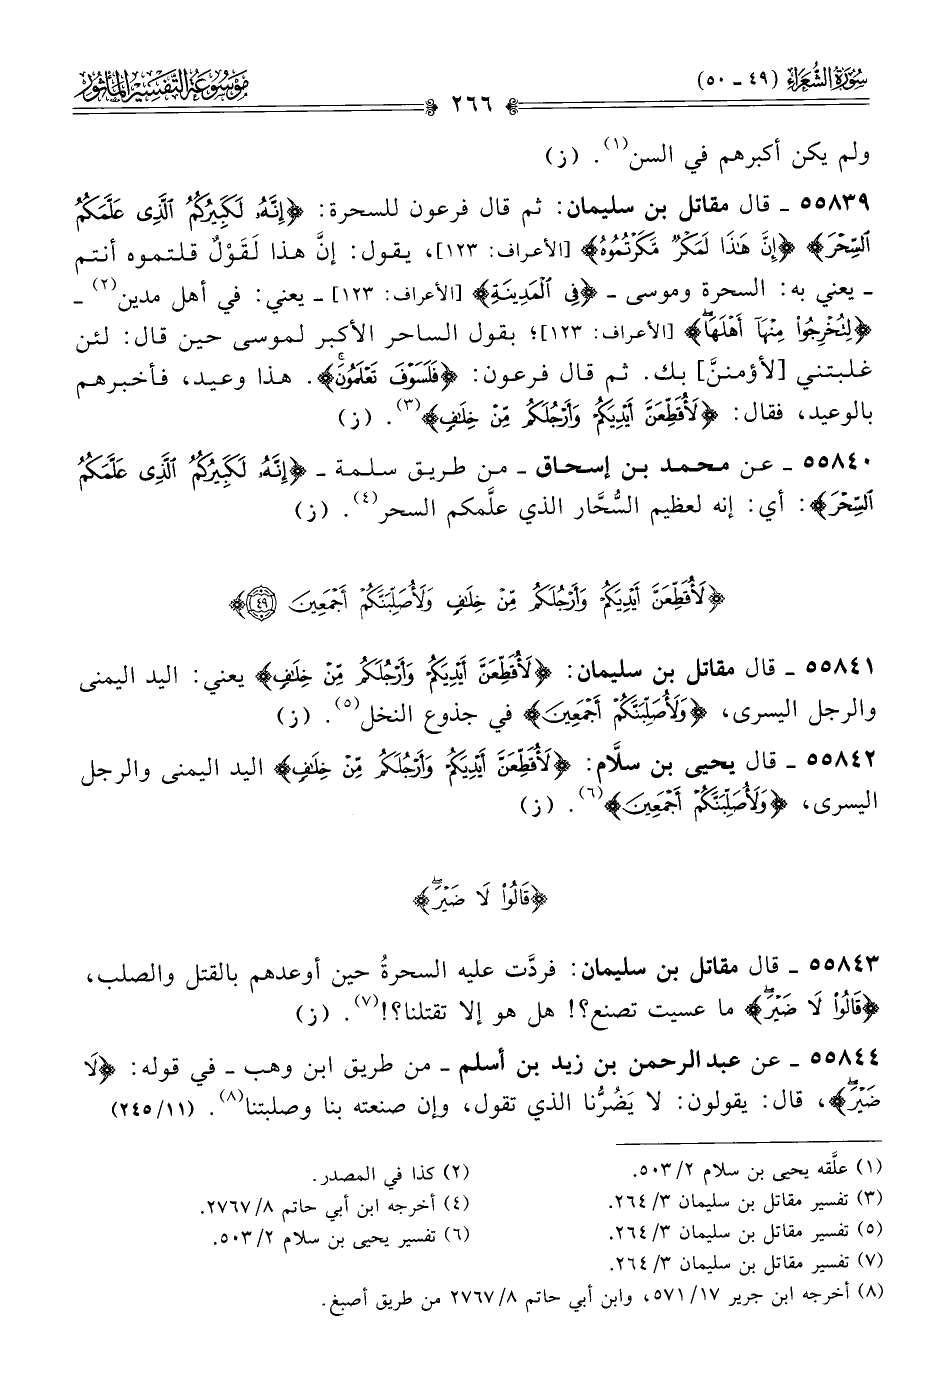 سورة الشعراء (٤٩ - ٥٠)
٢٦٦
موسوعة التفسير المأثور
ولم يكن أكبرهم في السن(١). (ز)
٥٥٨٣٩ - قال مقاتل بن سليمان: ثم قال فرعون للسحرة: ﴿إِنَّهُۥ لَكَبِيرُكُمُ ٱلَّذِى عَلَّمَكُمُ
ٱلسِّحْرَ﴾ ﴿إِنَّ هَٰذَا لَمَكْرٌ مَّكَرْتُمُوهُ﴾ [الأعراف: ١٢٣]، يقول: إنَّ هذا لَقَوْلٌ قلتموه أنتم
- يعني به: السحرة وموسى - ﴿فِى ٱلْمَدِينَةِ﴾ [الأعراف: ١٢٣] - يعني: في أهل مدين(٢) -
﴿لِتُخْرِجُوا۟ مِنْهَآ أَهْلَهَا ۖ﴾ [الأعراف: ١٢٣]؛ بقول الساحر الأكبر لموسى حين قال: لئن
غلبتني [لأؤمننَّ] بك. ثم قال فرعون: ﴿فَلَسَوْفَ تَعْلَمُونَ ۚ﴾. هذا وعيد، فأخبرهم
بالوعيد، فقال: ﴿لَأُقَطِّعَنَّ أَيْدِيَكُمْ وَأَرْجُلَكُم مِّنْ خِلَٰفٍ﴾(٣). (ز)
٥٥٨٤٠ - عن محمد بن إسحاق - من طريق سلمة - ﴿إِنَّهُۥ لَكَبِيرُكُمُ ٱلَّذِى عَلَّمَكُمُ
ٱلسِّحْرَ﴾: أي: إنه لعظيم السُّحَّار الذي علَّمكم السحر(٤). (ز)
﴿لَأُقَطِّعَنَّ أَيْدِيَكُمْ وَأَرْجُلَكُم مِّنْ خِلَٰفٍ وَلَأُصَلِّبَنَّكُمْ أَجْمَعِينَ ٤٩﴾
٥٥٨٤١ - قال مقاتل بن سليمان: ﴿لَأُقَطِّعَنَّ أَيْدِيَكُمْ وَأَرْجُلَكُم مِّنْ خِلَٰفٍ﴾ يعني: اليد اليمنى
والرجل اليسرى، ﴿وَلَأُصَلِّبَنَّكُمْ أَجْمَعِينَ﴾ في جذوع النخل(٥). (ز)
٥٥٨٤٢ - قال يحيى بن سلَّام: ﴿لَأُقَطِّعَنَّ أَيْدِيَكُمْ وَأَرْجُلَكُم مِّنْ خِلَٰفٍ﴾ اليد اليمنى والرجل
اليسرى، ﴿وَلَأُصَلِّبَنَّكُمْ أَجْمَعِينَ﴾(٦). (ز)
﴿قَالُوا۟ لَا ضَيْرَ ۖ﴾
٥٥٨٤٣ - قال مقاتل بن سليمان: فردَّت عليه السحرةُ حين أوعدهم بالقتل والصلب،
﴿قَالُوا۟ لَا ضَيْرَ ۖ﴾ ما عسيت تصنع؟! هل هو إلا تقتلنا؟!(٧). (ز)
٥٥٨٤٤ - عن عبد الرحمن بن زيد بن أسلم - من طريق ابن وهب - في قوله: ﴿لَا
ضَيْرَ ۖ﴾، قال: يقولون: لا يَضُرُّنا الذي تقول، وإن صنعته بنا وصلبتنا(٨). (١١/ ٢٤٥)
(١) علَّقه يحيى بن سلام ٢/ ٥٠٣.
(٢) كذا في المصدر.
(٣) تفسير مقاتل بن سليمان ٣/ ٢٦٤.
(٤) أخرجه ابن أبي حاتم ٨/ ٢٧٦٧.
(٥) تفسير مقاتل بن سليمان ٣/ ٢٦٤.
(٦) تفسير يحيى بن سلام ٢/ ٥٠٣.
(٧) تفسير مقاتل بن سليمان ٣/ ٢٦٤.
(٨) أخرجه ابن جرير ١٧/ ٥٧١، وابن أبي حاتم ٨/ ٢٧٦٧ من طريق أصبغ.